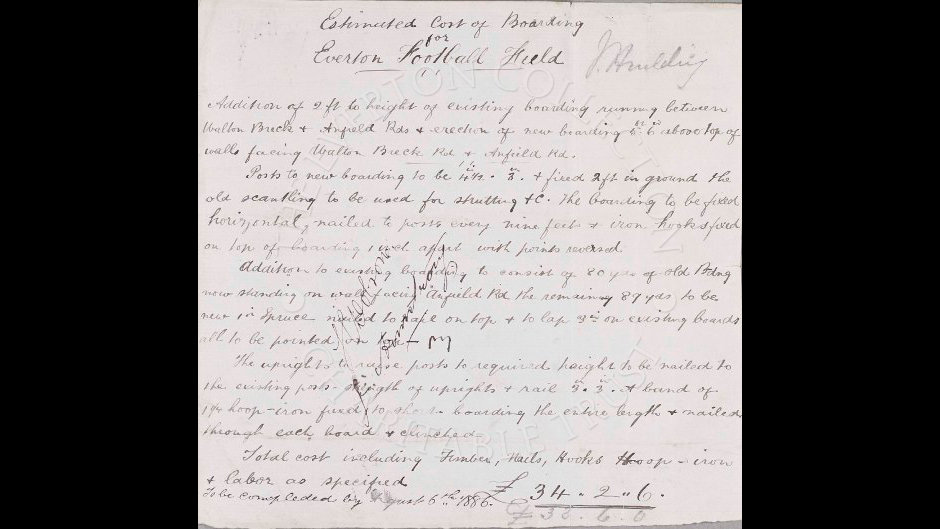 Estimated Cost of Boarding
for
Everton Football Field
J. Houlding
Addition of 2 ft to height of existing boarding running between
Walton Breck & Anfield Rds & erection of new boarding 5ft 6in above top of
walls facing Walton Breck Rd & Anfield Rd.
Posts to new boarding to be 4½ . 3in & fixed 2ft in ground the
old scantling to be used for strutting &c. The boarding to be fixed
horizontal, nailed to posts every nine feet & iron hooks fixed
on top of boarding 1 yd. apart with points reversed
Addition to existing boarding to consist of 80 yds of old Bdng
now standing on wall facing Anfield Rd the remaining 89 yds to be
new 1in Spruce nailed to rail on top & to lap 3in on existing boards
all to be pointed on top
The uprights to raise posts to required height to be nailed to
the existing posts - strength of uprights & rail 3in. A band of
1¼ hoop-iron fixed to boarding the entire length & nailed
through each board & clinched
Total cost including Timber, Nails, Hooks Hoop-iron
& labor as specified
£34 . 2 . 6.
To be completed by August 6th 1886.
LIVERTON COLLECTION
CHARITABLE TRUST